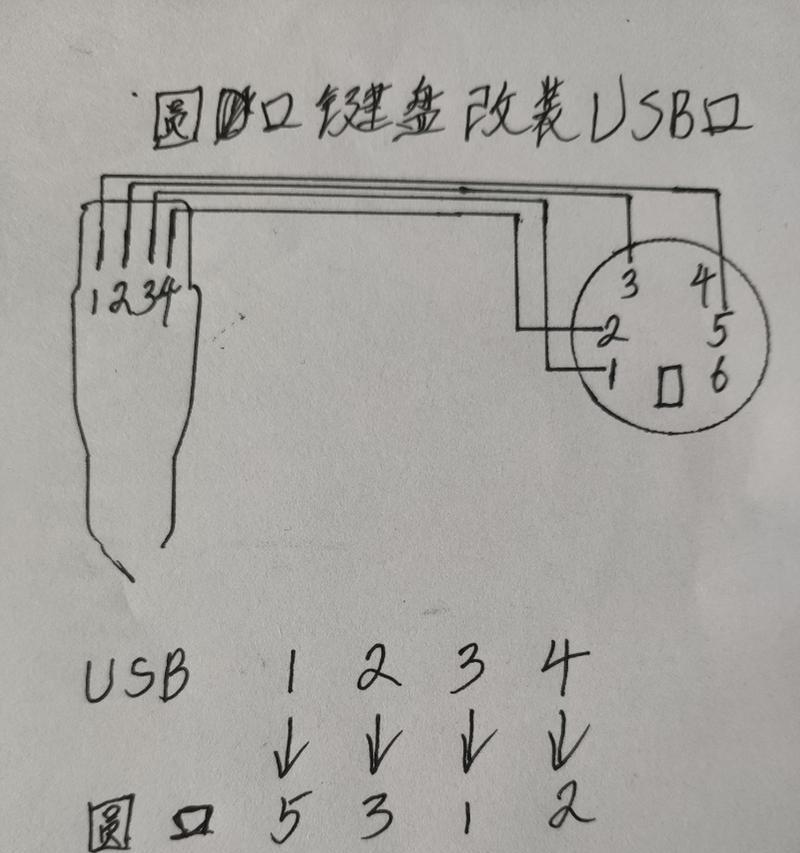 圆口键盘改装USB口
1 2 3 4
3 4
2 5
1 6
USB 1 2 3 4
圆口 5 3 1 2